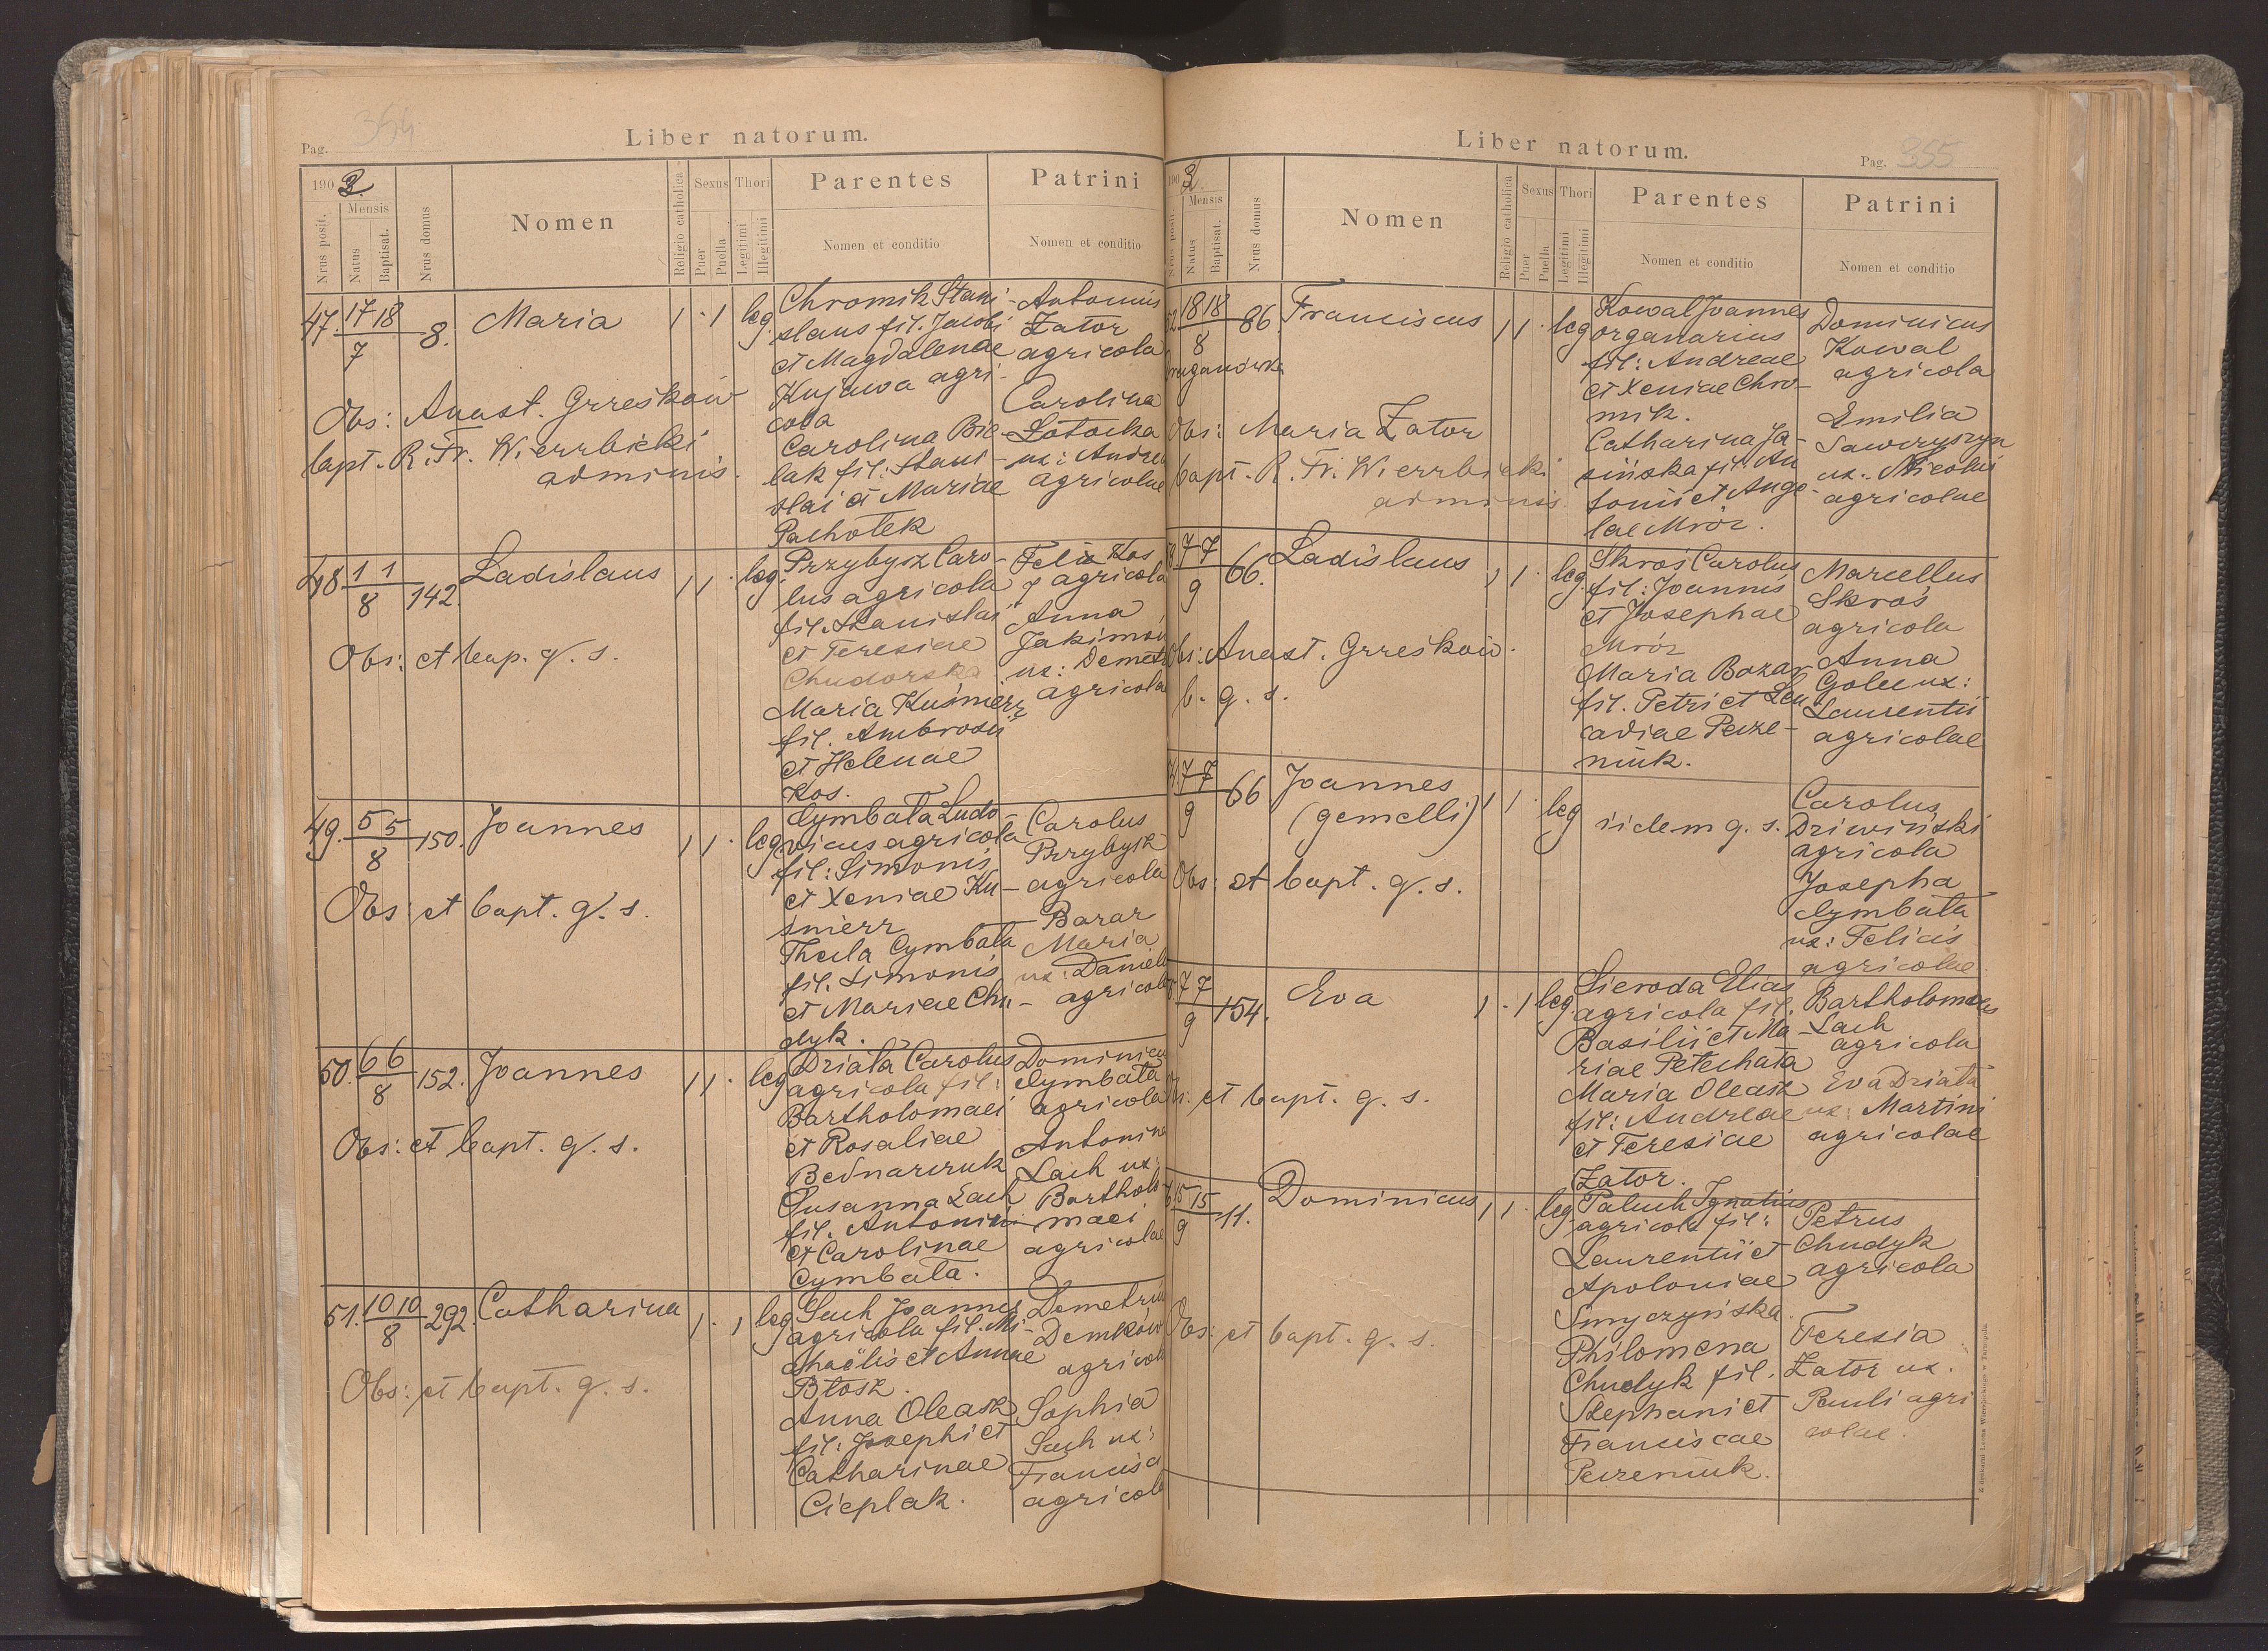 Pag. 354
Liber natorum.
1903.
Nrus posit.
Mensis
Natus
Baptisat.
Nrus domus
Nomen
Religio catholica
Sexus
Puer
Puella
Thori
Legitimi
Illegitimi
Parentes
Nomen et conditio
Patrini
Nomen et conditio
47. 17 18 / 7 8. Maria 1 · 1 leg.
Chromik Stani-
slaus fil. Jacobi
et Magdalenae
Kujawa agri-
cola
Carolina Bie-
lak fil: Stani-
slai et Mariae
Pachołek
Antonius
Zator
agricola
Carolina
Łotocka
ux: Andrea
agricolae
Obs: Anast. Grześków
bapt. R. Fr. Wierzbicki
adminis.
48 1 1 / 8 142. Ladislaus 1 1 · leg.
Przybysz Caro-
lus agricola
fil. Stanislai
et Teresiae
Chudorska
Maria Kuśnierz
fil. Ambrosii
et Helenae
Kos.
Felix Kos
agricola
Anna
Jakimów
ux: Demetr
agricola
Obs: et bap. q. s.
49. 5 5 / 8 150. Joannes 1 1 · leg
Cymbała Ludo
vicus agricola
fil: Simonis
et Xeniae Ku-
śnierz
Thecla Cymbała
fil. Simonis
et Mariae Chu-
dyk.
Carolus
Przybysz
agricola
Barar
Maria
ux: Daniel
agricola
Obs: et bapt. q. s.
50. 6 6 / 8 152. Joannes 1 1 · leg
Działa Carolus
agricola fil:
Bartholomaei
et Rosaliae
Bednarczuk
Susanna Lach
fil. Antonii
et Carolinae
Cymbała.
Dominicus
Cymbała
agricola
Antonina
Lach ux:
Bartholo-
maei
agricolae
Obs: et bapt. q. s.
51. 10 10 / 8 292. Catharina 1 · 1 leg.
Such Joannes
agricola fil. Mi-
chaëlis et Annae
Błosk.
Anna Oleask
fil: Josephi et
Catharinae
Cieplak.
Demetriu
Demków
agricola
Sophia
Such ux:
Francisci
agricola
Obs: et bapt. q. s.
Liber natorum.
Pag. 355
1903.
Nrus posit.
Mensis
Natus
Baptisat.
Nrus domus
Nomen
Religio catholica
Sexus
Puer
Puella
Thori
Legitimi
Illegitimi
Parentes
Nomen et conditio
Patrini
Nomen et conditio
2. 18 18 / 8 86. Franciscus 1 1 · leg
Kowal Joannes
organarius
fil: Andreae
et Xeniae Chro-
mik.
Catharina Ja-
sińska fil. An
tonii et Ange-
lae Mróz.
Dominicus
Kowal
agricola
Emilia
Sawczyszyn
ux. Nicolai
agricolae
Obs: Maria Zator
bapt. R. Fr. Wierzbicki
adminis
7 7 / 9 66. Ladislaus 1 1 · leg.
Skroś Carolus
fil: Joannis
et Josephae
Mróz
Maria Bazar
fil. Petri et Leu
cadiae Pecze-
niuk.
Marcellus
Skroś
agricola
Anna
Golec ux:
Laurentii
agricolae
Obs: Anast. Grześków.
b. q. s.
7 7 / 9 66 Joannes 1 1 · leg
(gemelli)
iidem q. s.
Carolus
Dziewiński
agricola
Josepha
Cymbała
ux: Felicis
agricolae
Obs: et bapt. q. s.
7 7 / 9 154. Eva 1 · 1 leg.
Sieroda Elias
agricola fil.
Basilii et Ma-
riae Petechała
Maria Oleask
fil: Andreae
et Teresiae
Zator.
Bartholomaeus
Lach
agricola
Eva Działa
ux: Martini
agricolae
et bapt. q. s.
15 15 / 9 11. Dominicus 1 1 · leg.
Paluch Ignatius
agricola fil:
Laurentii et
Apoloniae
Smyczyńska.
Philomena
Chudyk fil.
Stephani et
Franciscae
Peczeniuk.
Petrus
Chudyk
agricola
Teresia
Zator ux.
Pauli agri
colae.
Obs: et bapt. q. s.